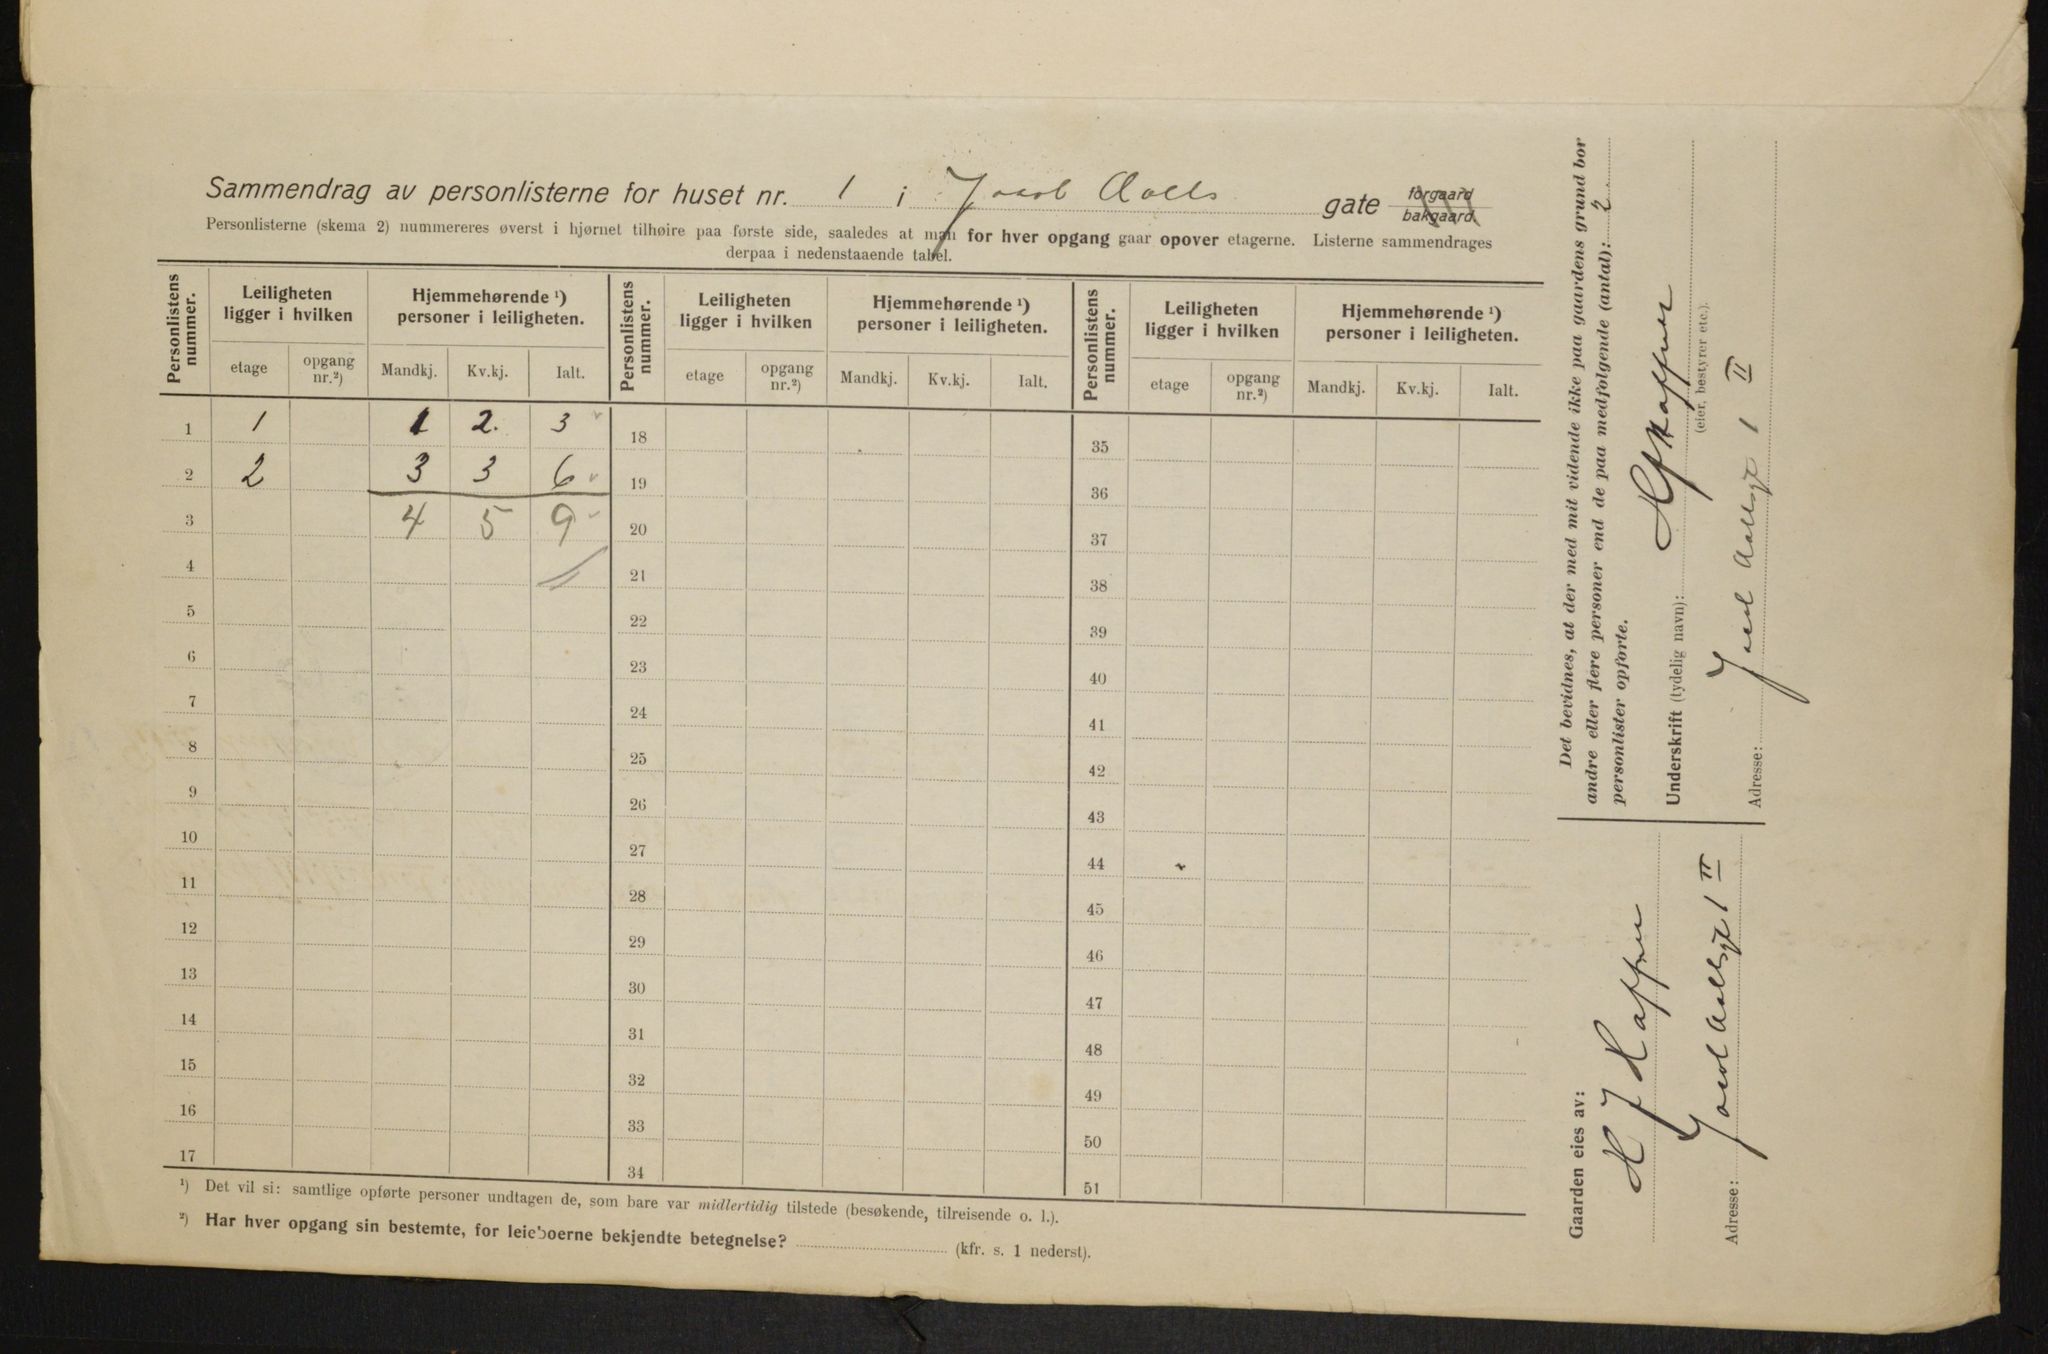 Sammendrag av personlisterne for huset nr. 1 i Jacob Aalls gate forgaard bakgaard.
Personlisterne (skema 2) nummereres øverst i hjørnet tilhøire paa første side, saaledes at man for hver opgang gaar opover etagerne. Listerne sammendrages
derpaa i nedenstaaende tabel.
Personlistens nummer. Leiligheten ligger i hvilken Hjemmehørende ¹) personer i leiligheten. Personlistens nummer. Leiligheten ligger i hvilken Hjemmehørende ¹) personer i leiligheten. Personlistens nummer. Leiligheten ligger i hvilken Hjemmehørende ¹) personer i leiligheten.
etage opgang nr.²) Mandkj. Kv.kj. Ialt. etage opgang nr.²) Mandkj. Kv.kj. Ialt. etage opgang nr.²) Mandkj. Kv.kj. Ialt.
1 1 1 2. 3 18 35
2 2 3 3 6 19 36
3 4 5 9 20 37
4 21 38
5 22 39
6 23 40
7 24 41
8 25 42
9 26 43
10 27 44
11 28 45
12 29 46
13 30 47
14 31 48
15 32 49
16 33 50
17 34 51
¹) Det vil si: samtlige opførte personer undtagen de, som bare var midlertidig tilstede (besøkende, tilreisende o. l.).
²) Har hver opgang sin bestemte, for leieboerne bekjendte betegnelse? (kfr. s. 1 nederst).
Det bevidnes, at der med mit vidende ikke paa gaardens grund bor
andre eller flere personer end de paa medfølgende (antal): 2
personlister opførte.
Underskrift (tydelig navn): Haffner
(eier, bestyrer etc.).
Adresse: Jacob Aallsgt 1 II
Gaarden eies av:
H J Haffner
Adresse: Jacob Aallsgt 1 II